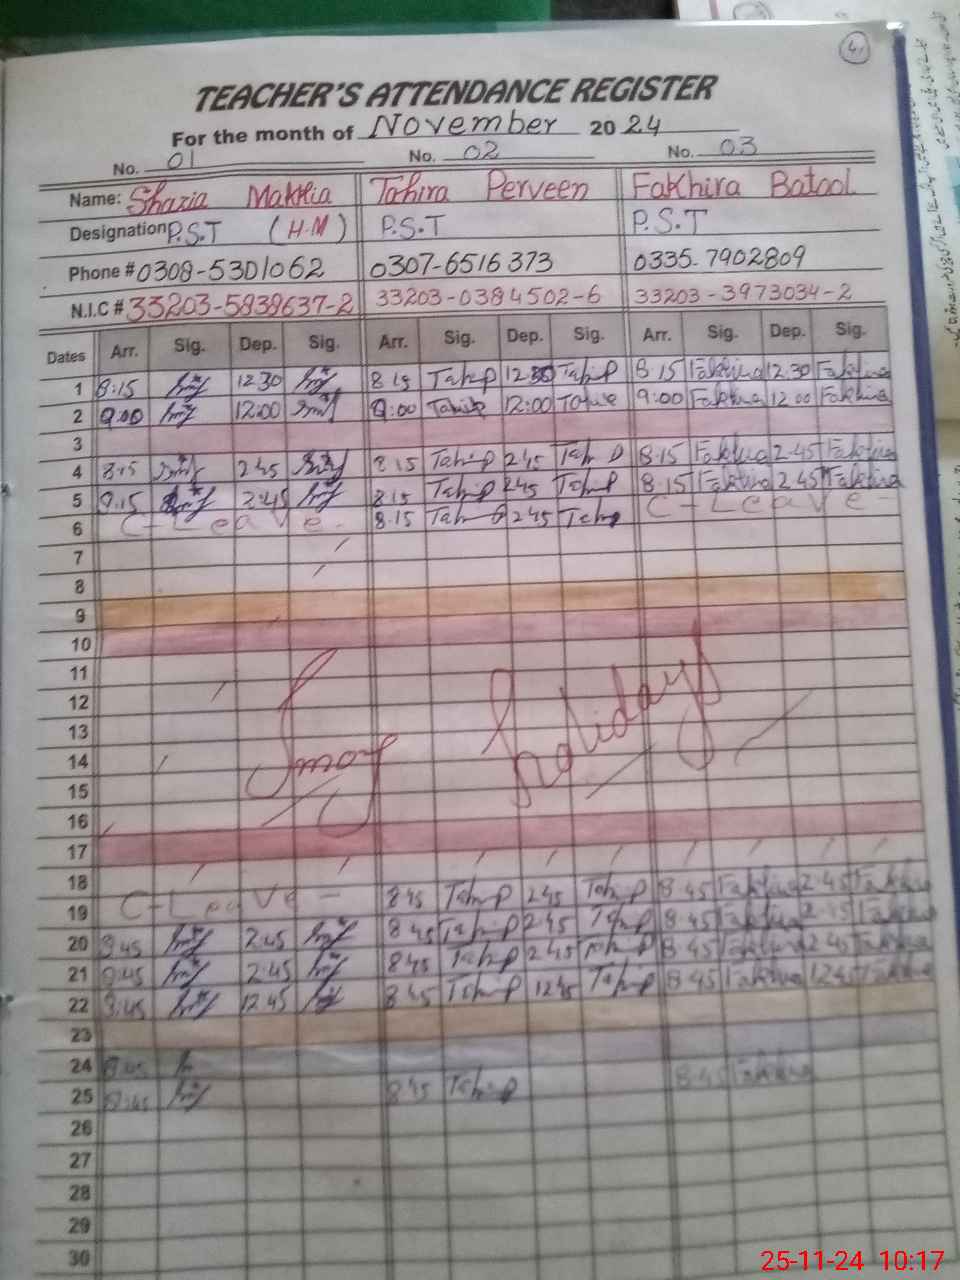 4
TEACHER'S ATTENDANCE REGISTER
For the month of November 2024
No. 01 No. 02 No. 03
Name: Shazia Tahira Perveen Fakhira Batool
Designation P.S.T (H.M) P.S.T P.S.T
Phone # 0308-5301062 0307-6516373 0335-7902809
N.I.C # 33203-5838637-2 33203-0384502-6 33203-3973034-2
Dates Arr. Sig. Dep. Sig. Arr. Sig. Dep. Sig. Arr. Sig. Dep. Sig.
1 8:15 12:30 8 15 Tahi P 12:30 Tahi P 8 15 Fakhira 12.30 Fakhira
2 9:00 12:00 9:00 12:00 9:00 Fakhira 12 00 Fakhira
3
4 8:15 2 45 8.15 Tahi P 2 45 Tah P 8.15 Fakhira 2.45 Fakhira
5 8.15 2:45 8.15 Tahi P 2 45 Tahi P 8.15 Fakhira 2.45 Fakhira
6 C-Leave - 8.15 2 45 C-Leave -
7
8
9
10
11
12
13
14 Smog holidays
15
16
17
18
19 C-Leave - 8 45 Tahi P 2 45 Tahi P 8 45 Fakhira 2.45 Fakhira
20 8:45 2:45 8 45 Tahi P 2.45 Tahi P 8 45 Fakhira 2.45 Fakhira
21 8:45 2:45 8 45 Tahi P 2 45 Tahi P 8 45 Fakhira 2 45 Fakhira
22 8:45 12.45 8 45 Tahi P 12 45 Tahi P 8 45 Fakhira 12 45 Fakhira
23
24
25 8:45 8 45 Tahi P 8.45 Fakhira
26
27
28
29
30
25-11-24 10:17